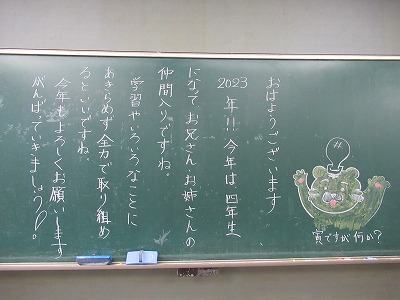 おはようございます
2023年!!今年は、四年生
になって、お兄さん、お姉さんの
仲間入りですね。
学習やいろいろなことに
あきらめず全力で取り組め
るといいですね。
今年もよろしくお願いします
がんばっていきましょう。
寅ですが何か?